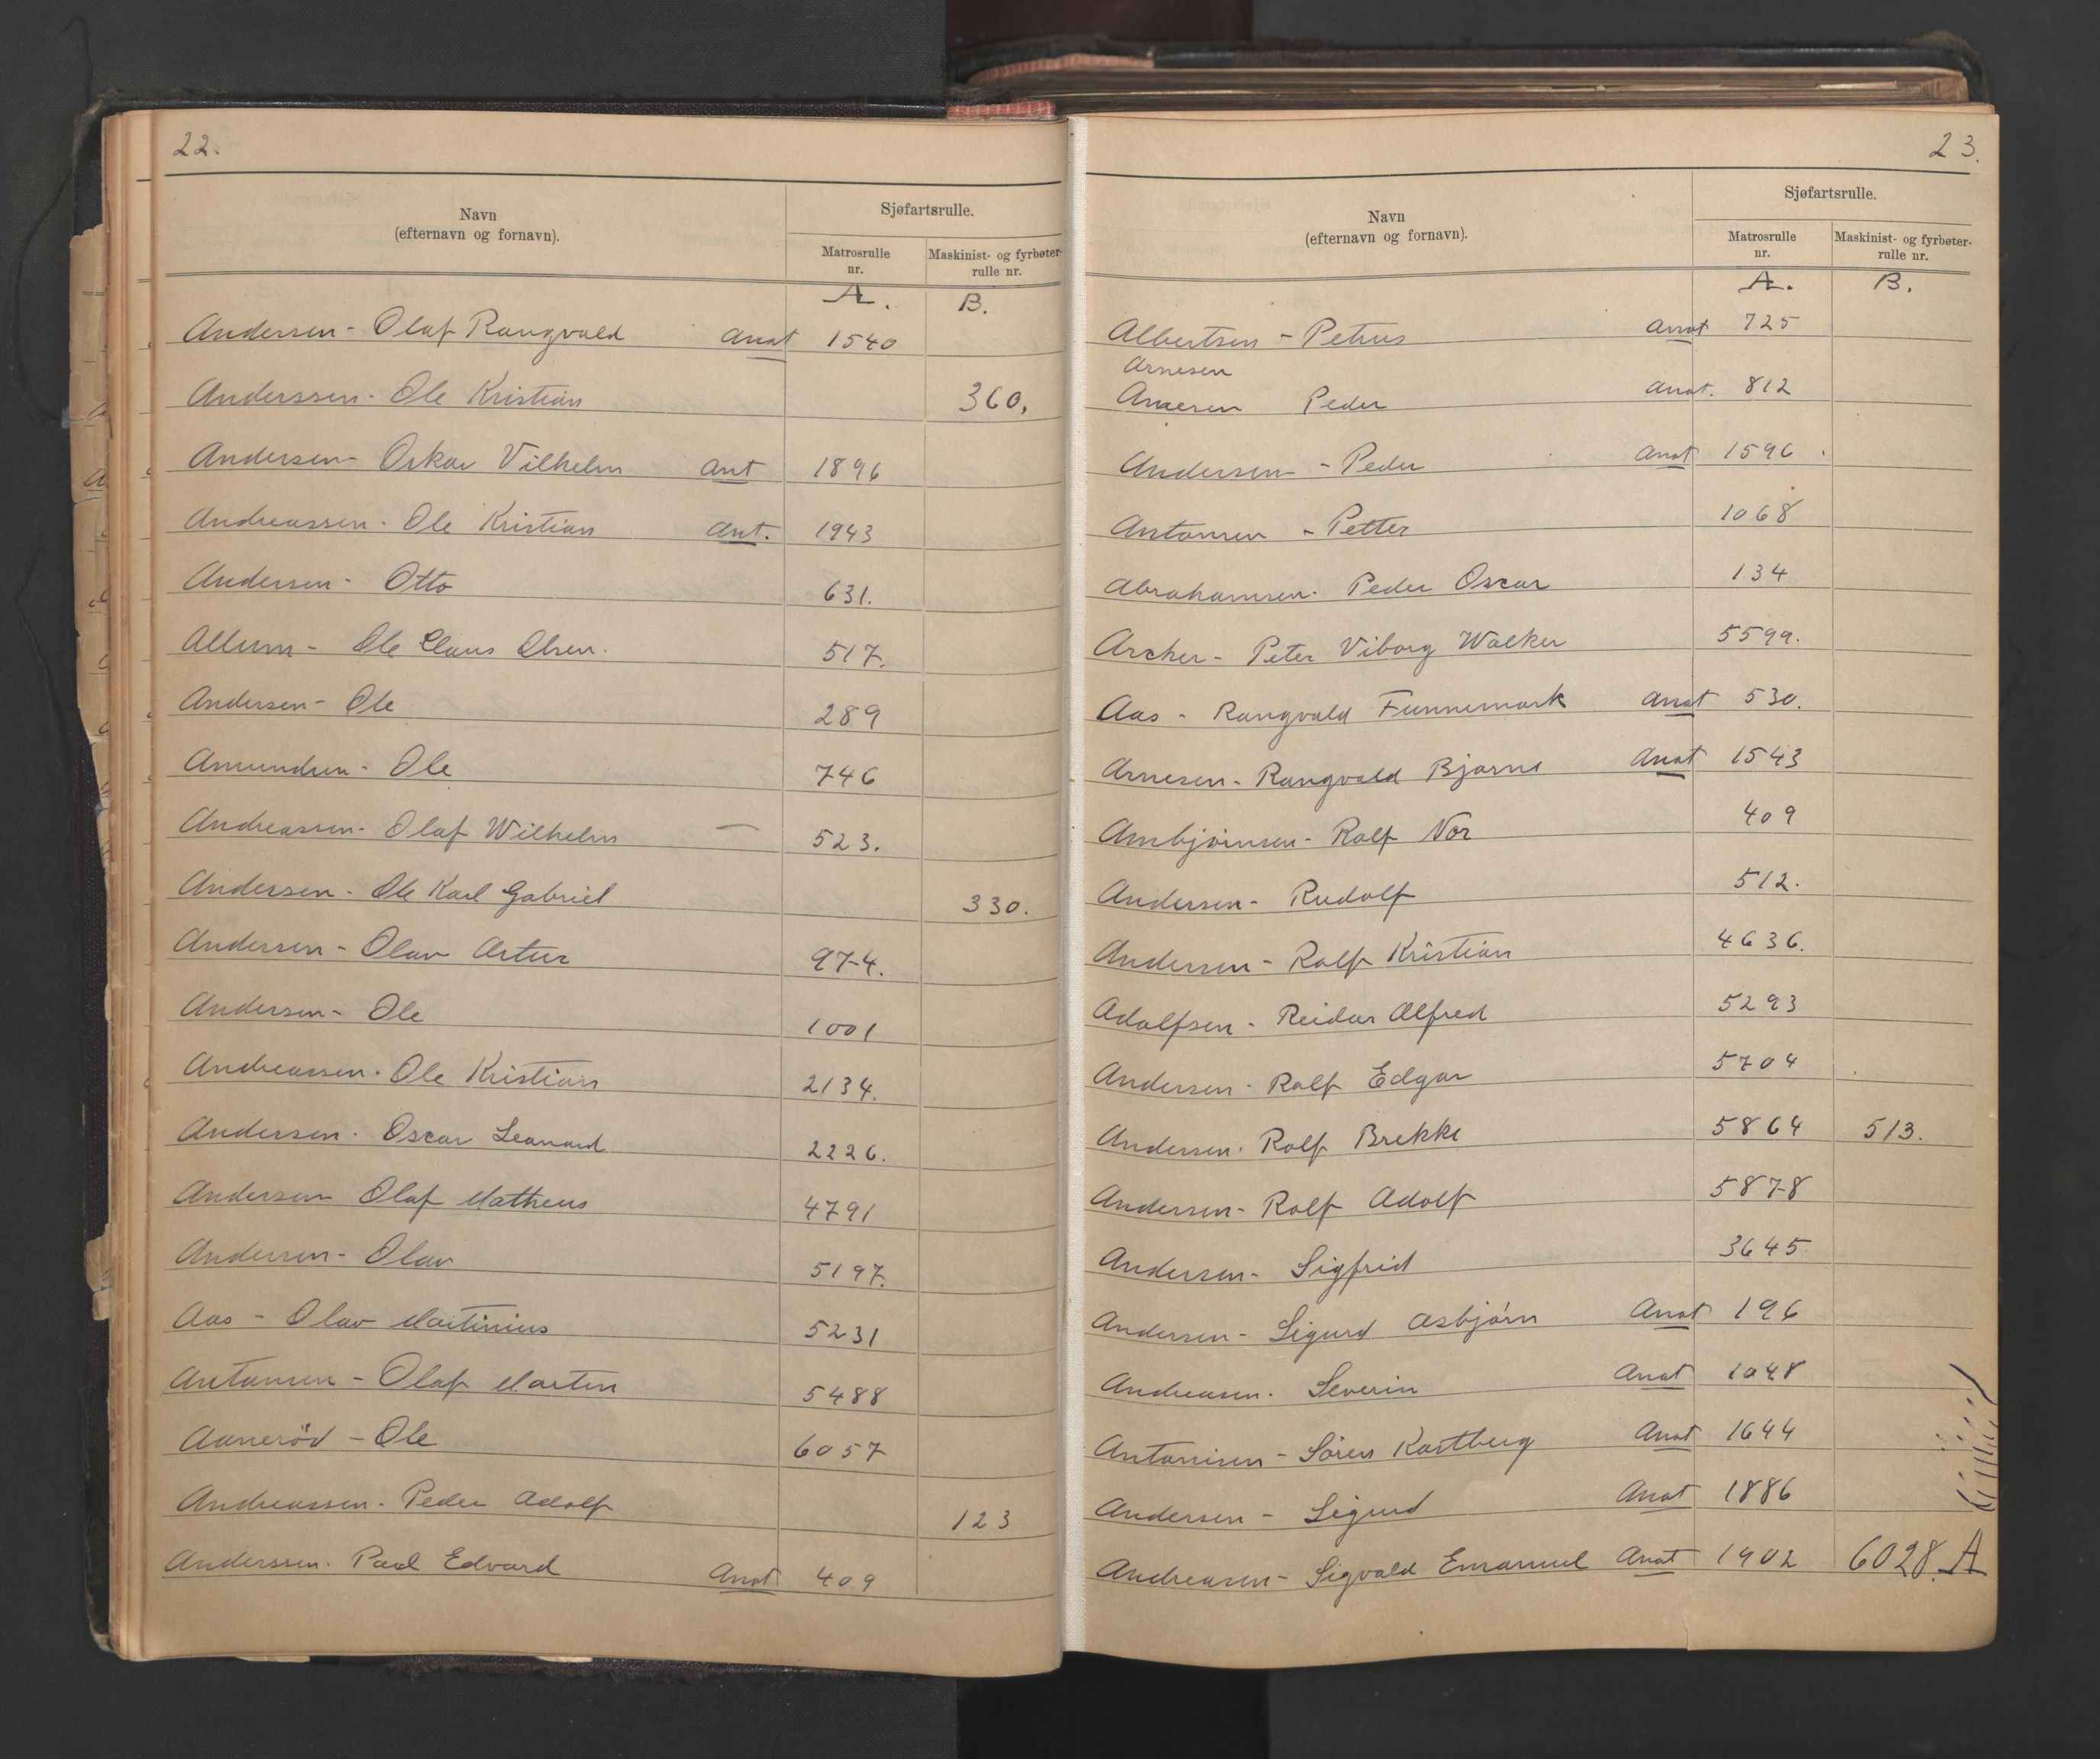 22.
Navn
(efternavn og fornavn).
Sjøfartsrulle.
Matrosrulle nr.
Maskinist- og fyrbøter-rulle nr.
A. B.
Andersen - Olaf Rangvald Anot 1540
Anderssen - Ole Kristian 360.
Andersen - Oskar Vilhelm Ant 1896
Andreassen - Ole Kristian Ant. 1943
Andersen - Otto 631.
Allum - Ole Claus Olsen. 517.
Andersen - Ole 289
Amundsen - Ole 746
Andreassen - Olaf Wilhelm — 523.
Andersen - Ole Karl Gabriel 330.
Andersen - Olav Artur 974.
Andersen - Ole 1001
Andreassen - Ole Kristian 2134.
Andersen - Oscar Leonard 2226.
Andersen Olaf Matheus 4791
Andersen - Olav 5197.
Aas - Olav Martinius 5231
Antonsen - Olaf Marten 5488
Aanerød - Ole 6057
Andreassen - Peder Adolf 123
Anderssen - Paul Edvard Anot 409
23.
Navn
(efternavn og fornavn).
Sjøfartsrulle.
Matrosrulle nr.
Maskinist- og fyrbøter-rulle nr.
A. B.
Albertsen - Petrus Anot 725
Arnesen
Peder Anot. 812
Andersen - Peder Anot 1596
Antonsen - Petter 1068
Abrahamsen - Peder Oscar 134
Archer - Peter Viborg Walker 5599.
Aas - Rangvald Funnemark Anot 530.
Arnesen - Rangvald Bjarne Anot 1543
Ambjørnsen - Rolf Nor 409
Andersen - Rudolf 512.
Andersen - Rolf Kristian 4636.
Adolfsen - Reidar Alfred 5293
Andersen - Rolf Edgar 5704
Andersen - Rolf Brekke 5864 513.
Andersen - Rolf Adolf 5878
Andersen - Sigfrid 3645
Andersen - Sigurd Asbjørn Anot 196
Andreasen - Severin Anot 1048
Antonisen - Søren Kastberg Anot 1644
Andersen - Sigurd Anot 1886
Andreasen - Sigvald Emanuel Anot 1902 6028. A